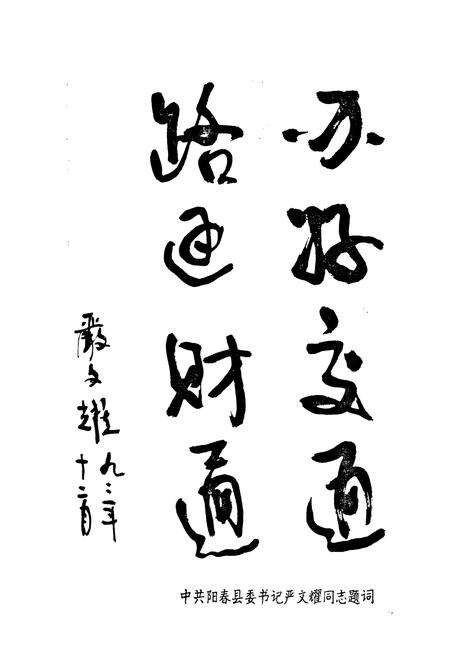 办好交通
路通财通
严文耀
九三年
十二月
中共阳春县委书记严文耀同志题词